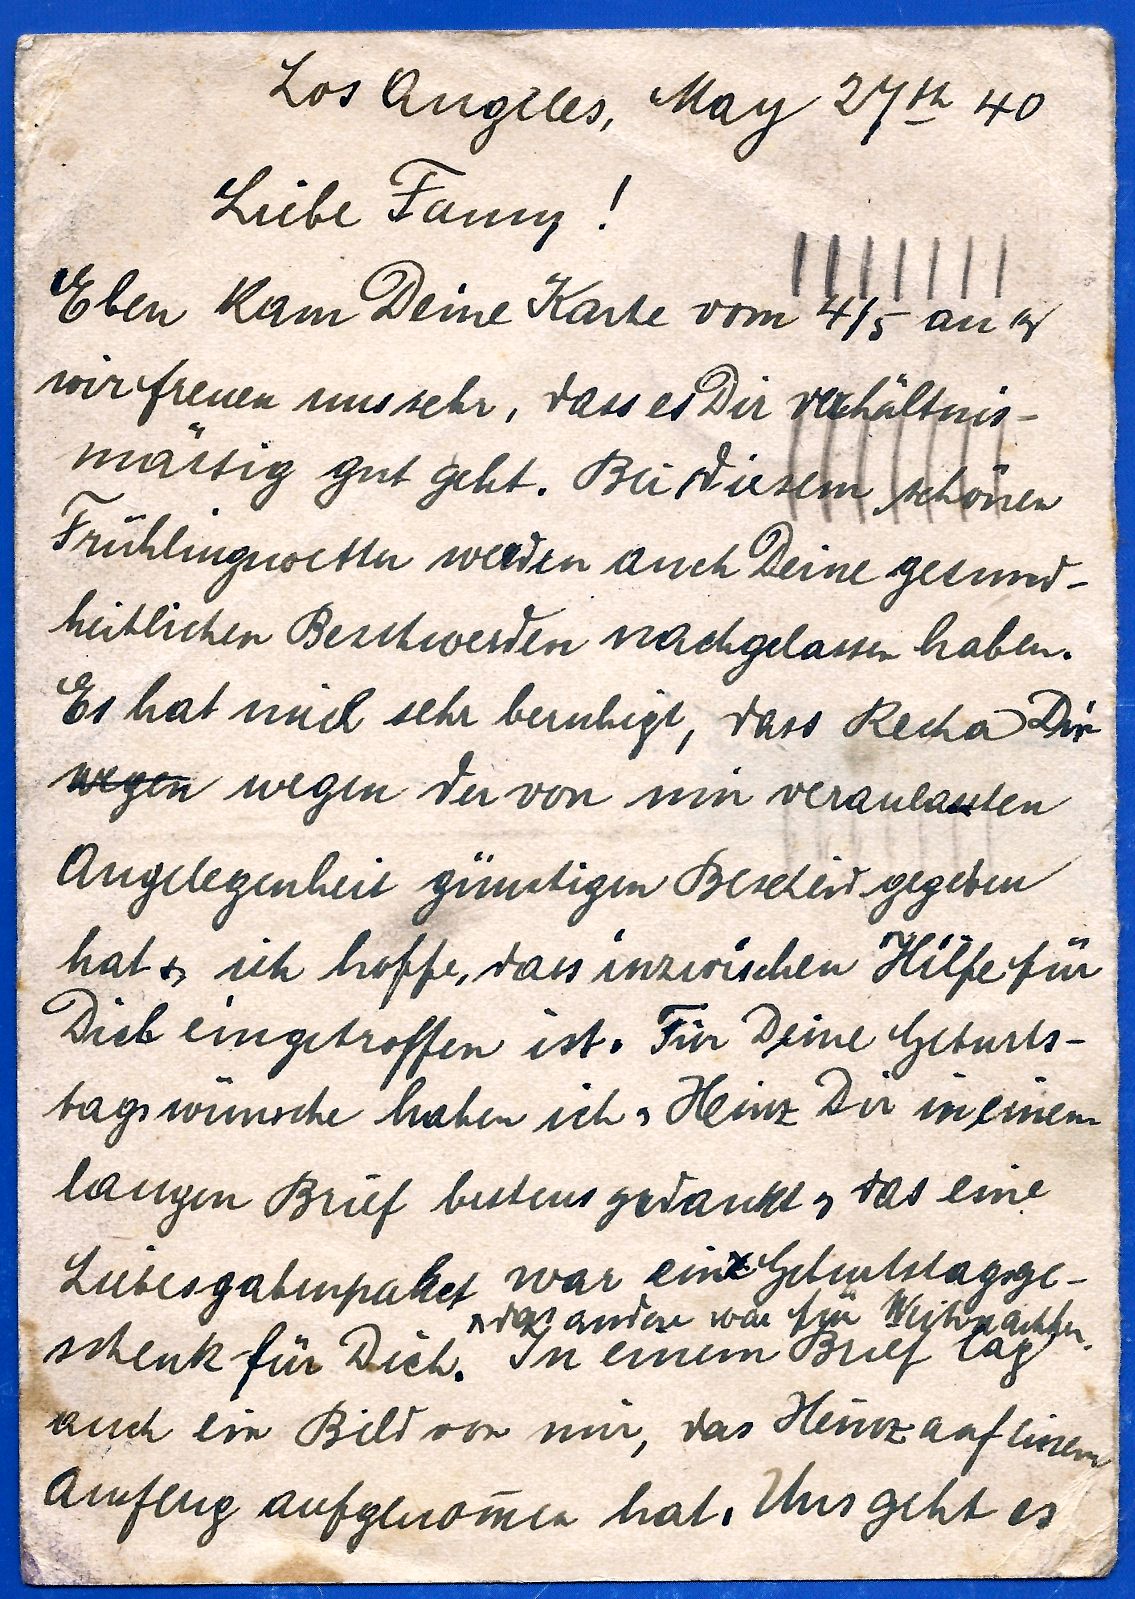 Los Angeles, May 27th 40
Liebe Fanny!
Eben kam Deine Karte vom 4/5 an &
wir freuen uns sehr, dass es Dir verhältnis-
mässig gut geht. Bei diesem schönen
Frühlingswetter werden auch Deine gesund-
heitlichen Beschwerden nachgelassen haben.
Es hat mich sehr beruhigt, dass Recha Dir
wegen wegen der von mir veranlassten
Angelegenheit günstigen Bescheid gegeben
hat & ich hoffe, dass inzwischen Hilfe für
Dich eingetroffen ist. Für Deine Geburts-
tagswünsche haben ich & Heinz Dir in einem
langen Brief bestens gedankt & das eine
Liebesgabenpaket war ein Geburtstagsge-
& das andere war für Weihnachten.
schenk für Dich. In einem Brief lag
auch ein Bild von mir, das Heinz auf einem
Ausflug aufgenom̅en hat. Uns geht es